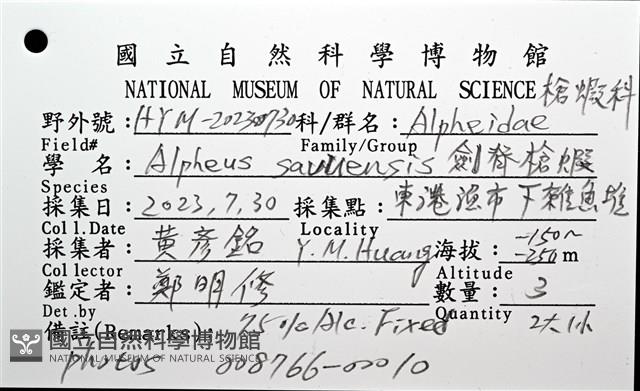 國立自然科學博物館
NATIONAL MUSEUM OF NATURAL SCIENCE 槍蝦科
野外號：HYM-20230730 科/群名：Alpheidae
Field# Family/Group
學 名：Alpheus 劍脊槍蝦
Species
採集日：2023,7,30 採集點：東港漁市下雜魚堆
Coll.Date Locality
採集者：黃彥銘 Y.M.Huang 海拔：-150~-250m
Collector Altitude
鑑定者：鄭明修 數量：3
Det.by Quantity 2大1小
備註(Remarks)：75% Alc. Fixed
國立自然科學博物館
NATIONAL MUSEUM OF NATURAL SCIENCE
photos 008766-00010